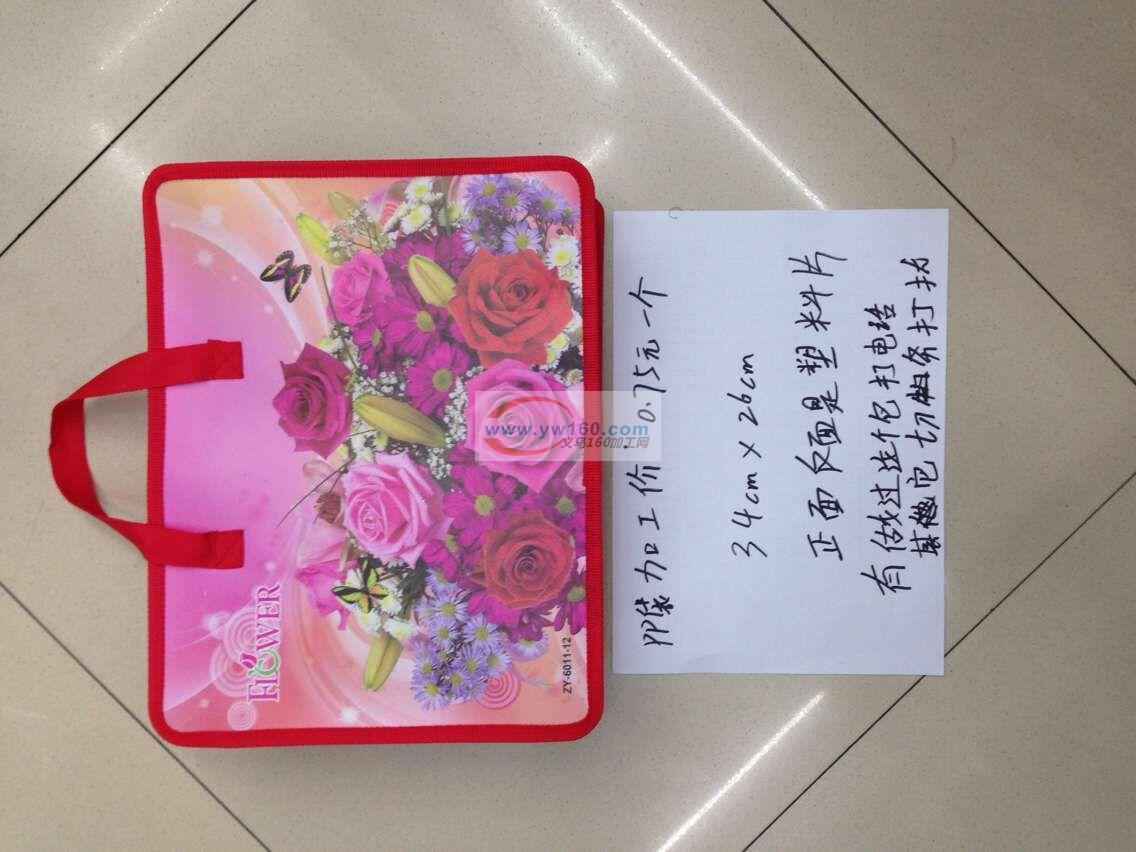 FLOWER
ZY-6011-12
www.yw160.com
义乌160加工网
PP袋加工价: 0.75元一个
34cm×26cm
正面反面是塑料片
有做过这个包打电话
其他包切条打扮